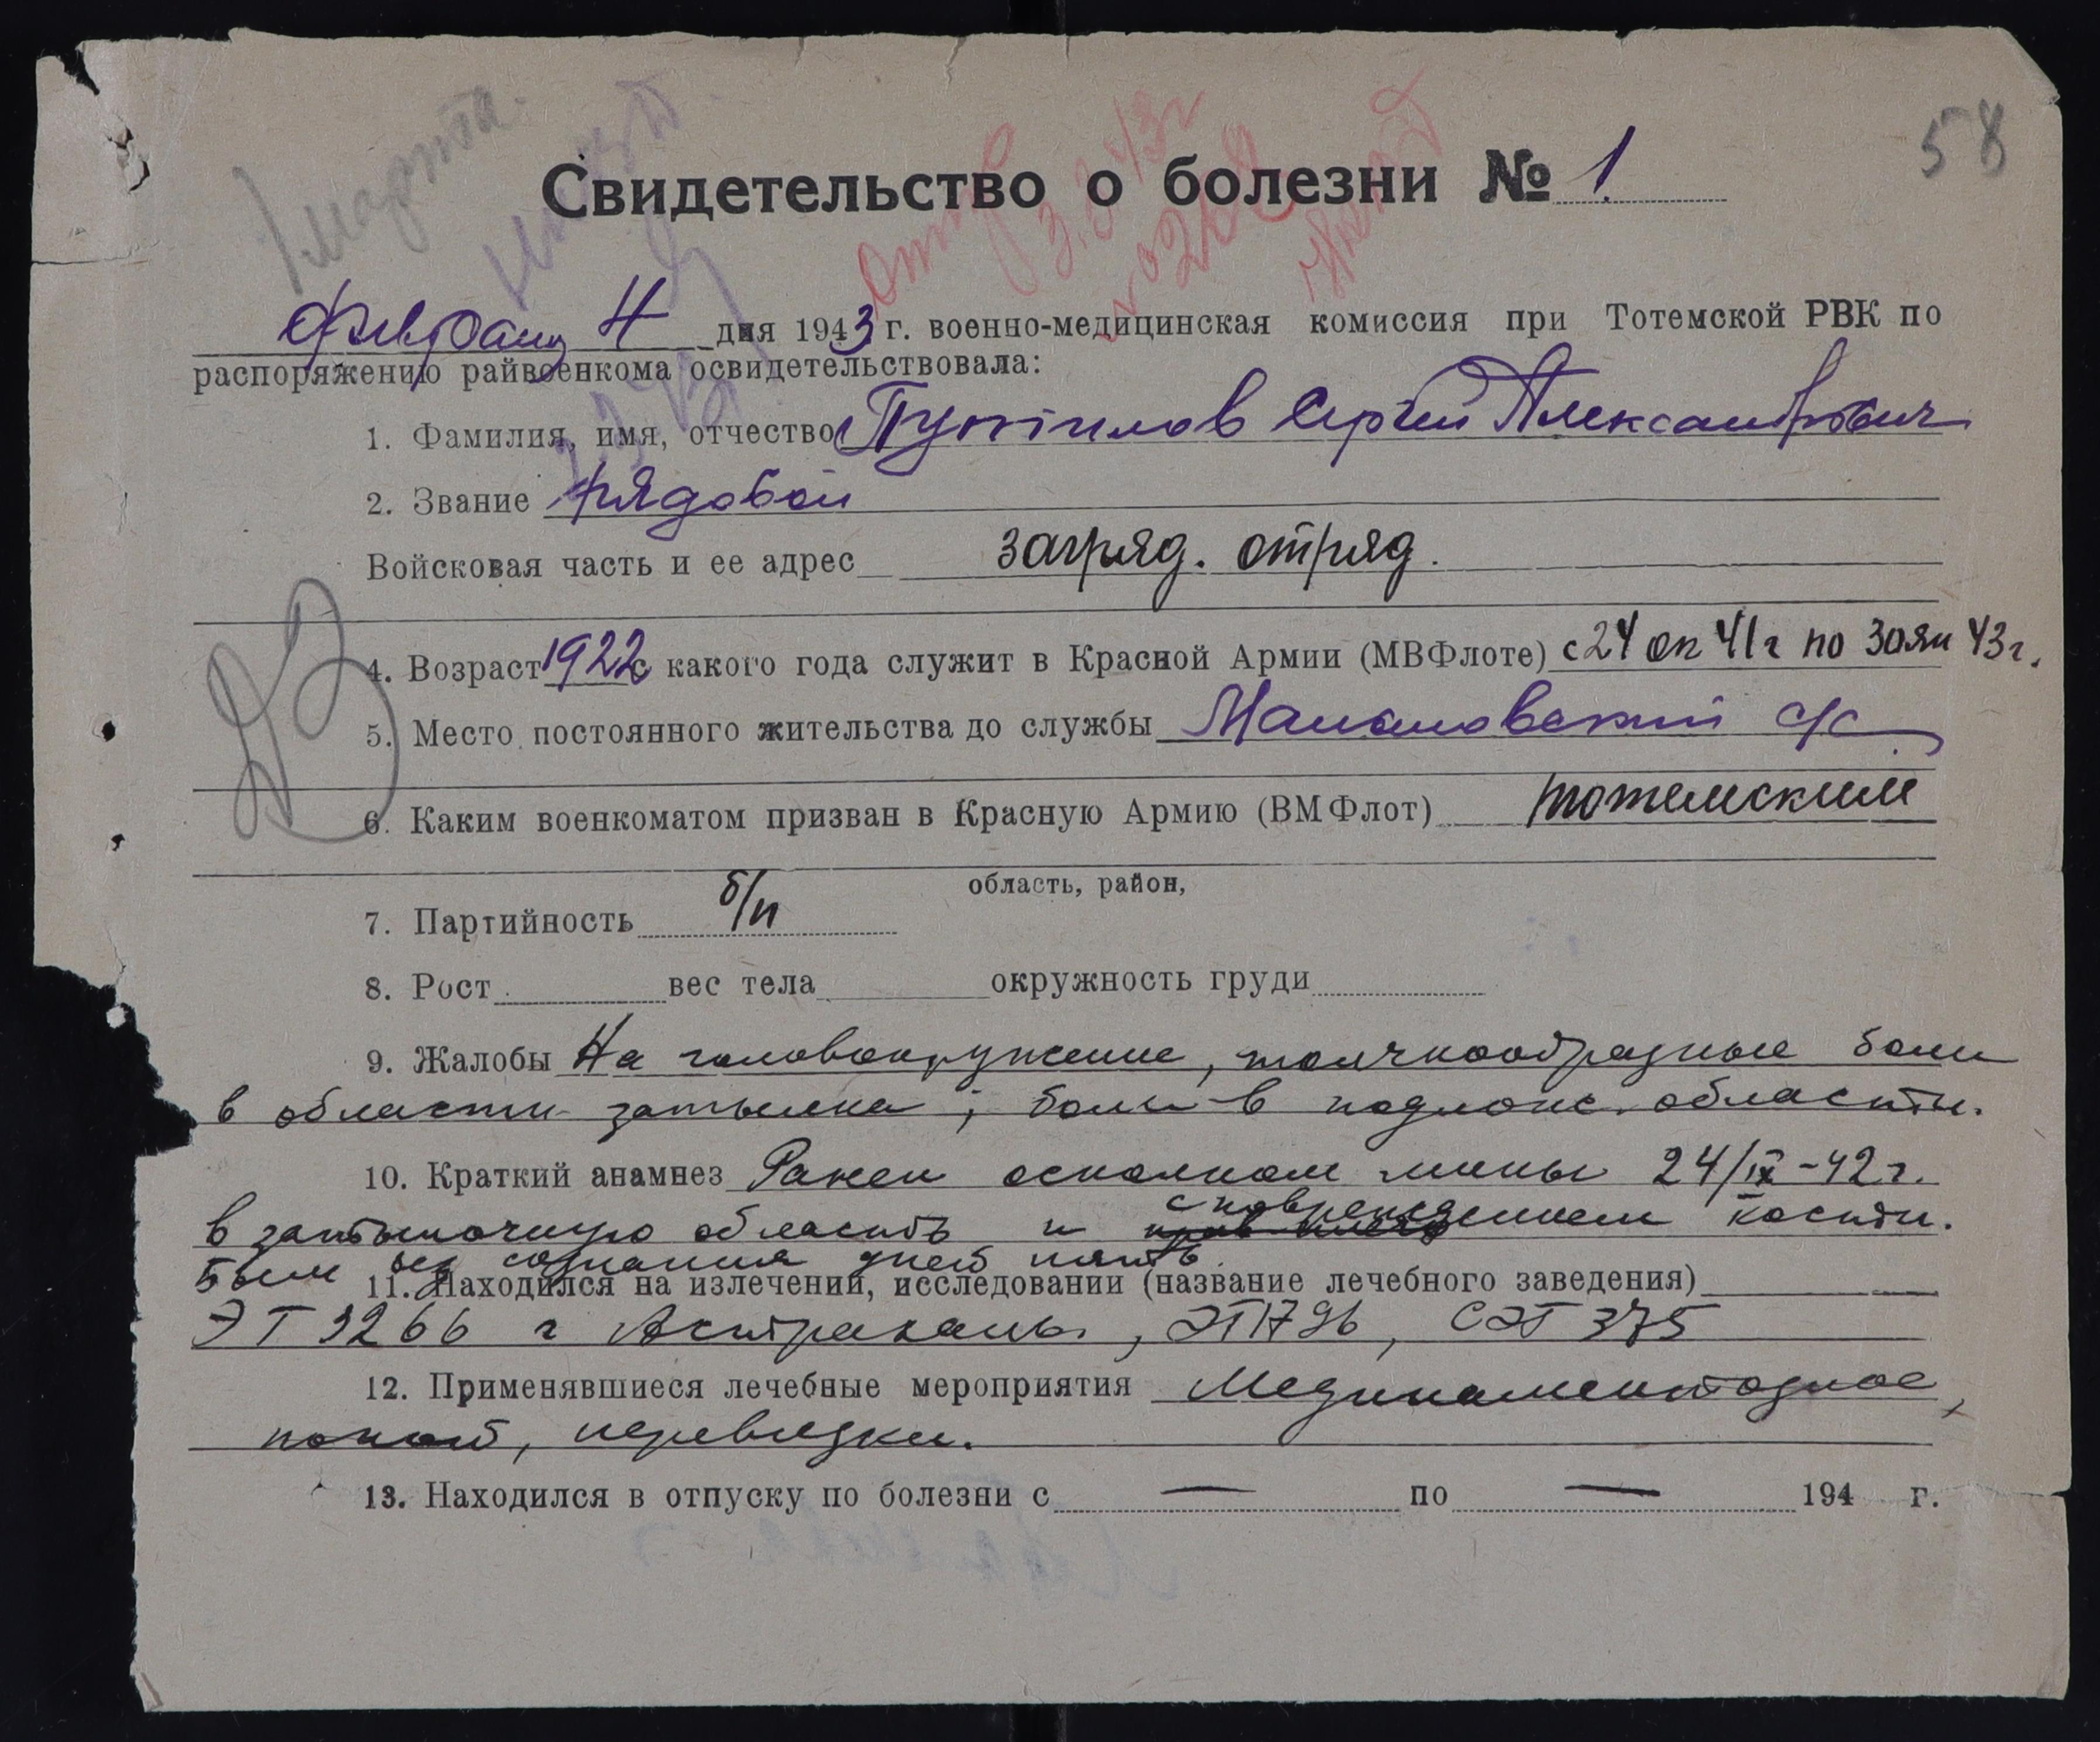 58
1 марта
Свидетельство о болезни № 1
февраля 4 дня 1943 г. военно-медицинская комиссия при Тотемской РВК по
распоряжению райвоенкома освидетельствовала:
1. Фамилия, имя, отчество Сергей Александрович
2. Звание рядовой
Войсковая часть и ее адрес загряд. отряд.
4. Возраст 1922 с какого года служит в Красной Армии (МВФлоте) с 24 ок 41 г по 30 ян 43 г.
5. Место постоянного жительства до службы с/с
6. Каким военкоматом призван в Красную Армию (ВМФлот) тотемским
область, район,
7. Партийность б/п
8. Рост вес тела окружность груди
9. Жалобы На головокружение, толчкообразные боли
в области затылка; боли в подлопс. области.
10. Краткий анамнез Ранен осколком мины 24/IX-42 г.
в затылочную область и с повреждением кости.
Был без сознания дней пять.
11. Находился на излечении, исследовании (название лечебного заведения)
ЭГ 3266 г Астрахань, ЭГ 1796, СЭГ 375
12. Применявшиеся лечебные мероприятия Медикаментозное,
покой, перевязки.
13. Находился в отпуску по болезни с — по — 194 г.